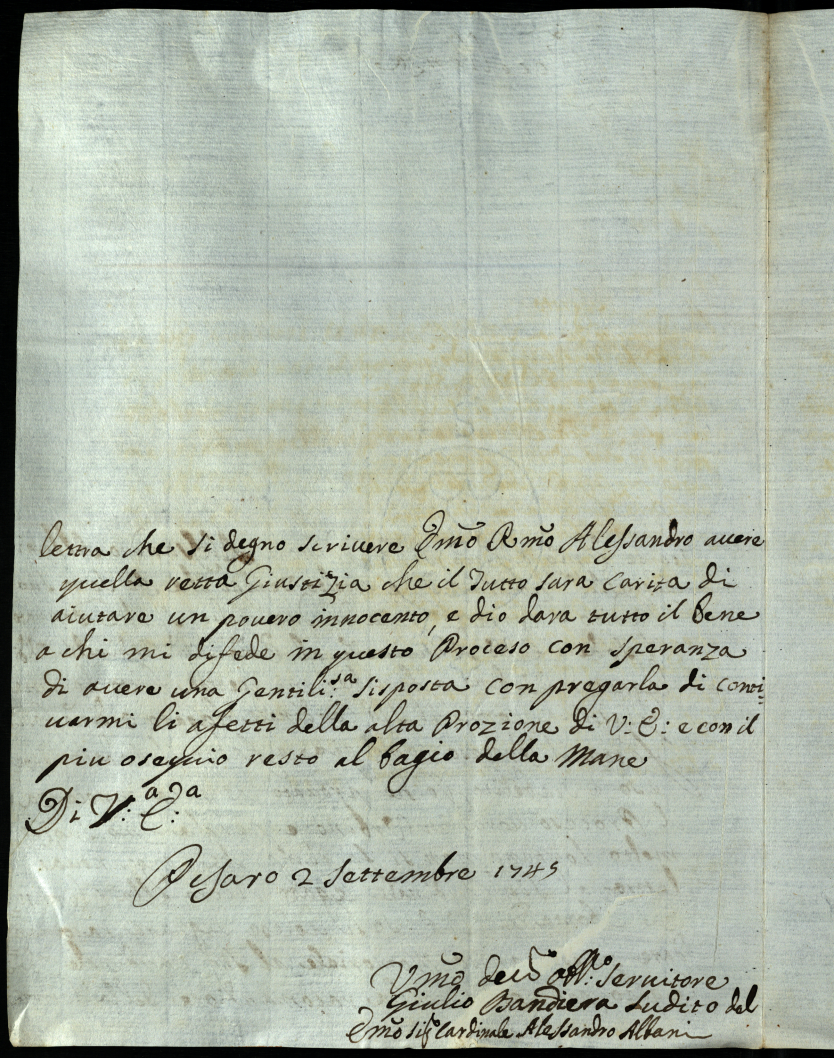 lettra che si degno scrivere Emõ Rmõ Alessandro avere
quella retta Giustizia che il Tutto sara carita di
aiutare un povero innocento, e dio dara tutto il bene
a chi mi difede in questo Proceso con speranza
di avere una Gentili:sa sisposta con pregarla di conti=
uarmi li afetti della alta Prozione di V: E: e con il
piu osequio resto al bagio della Mane
Di V:a E:a
Pesaro 2 Settembre 1745
Vmõ
Servitore
Giulio Bandiera Sudito del
Emõ Sig Cardinale Alessandro Albani